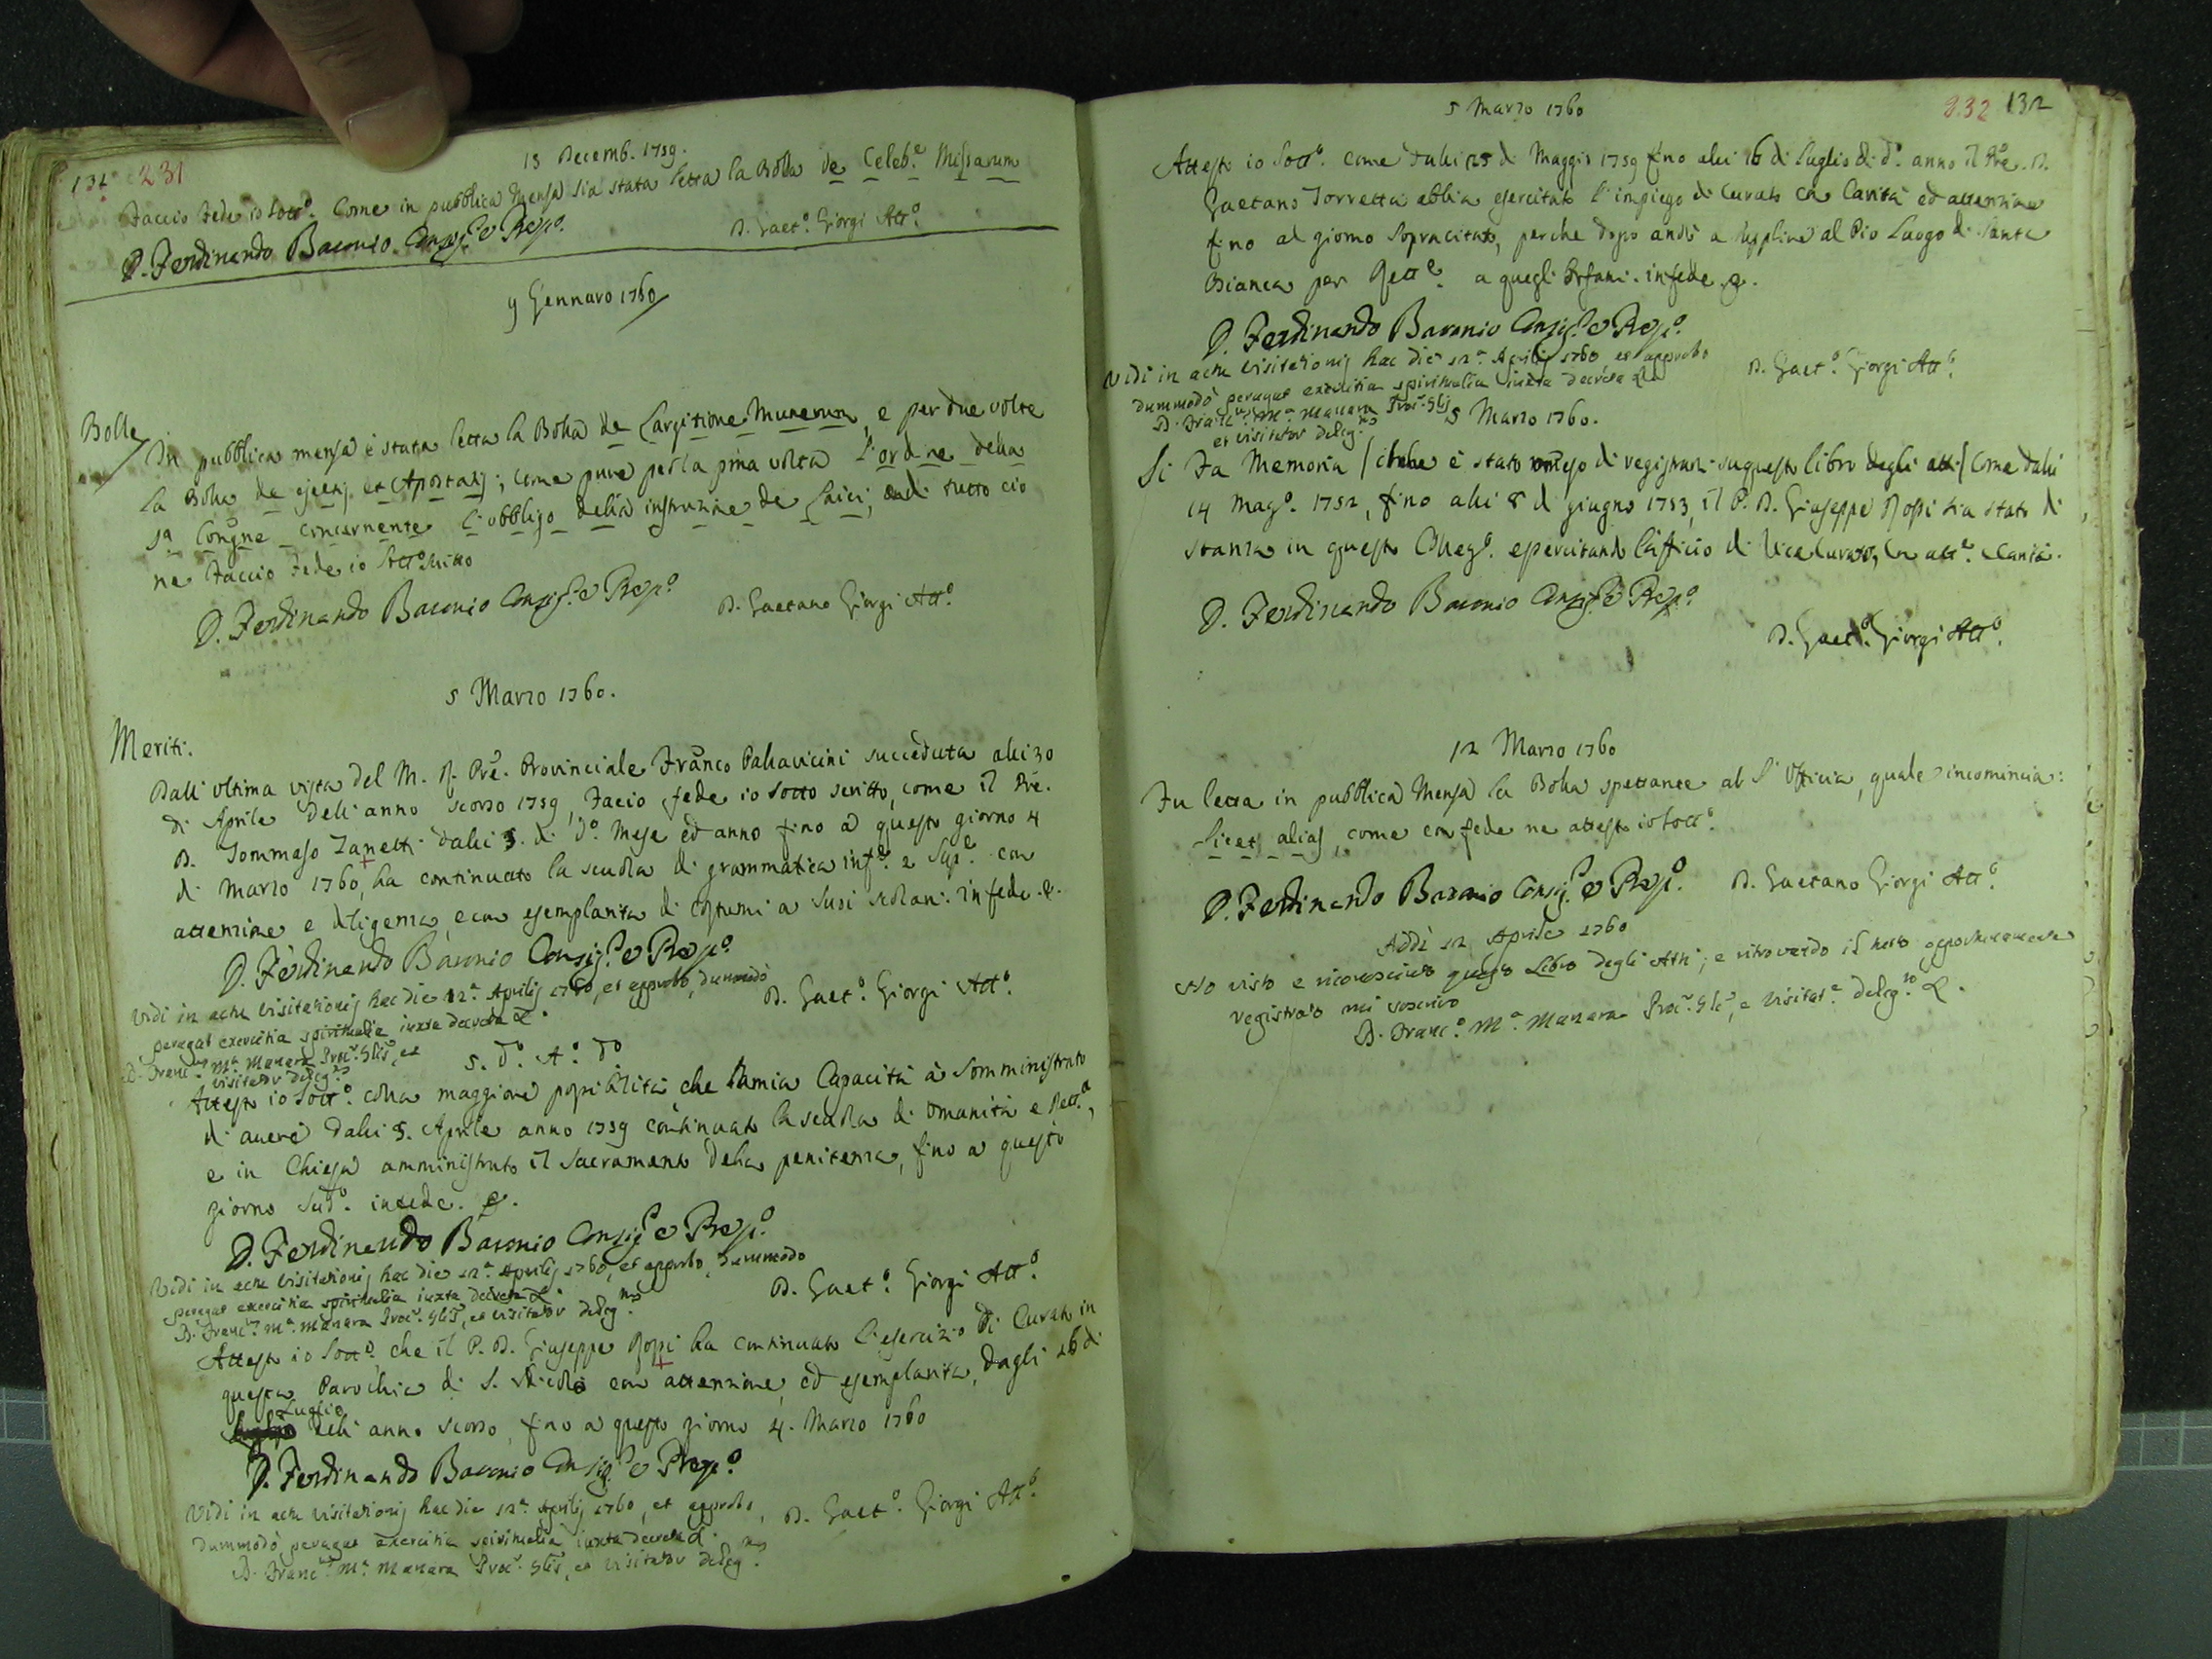 131 231
13 Decemb. 1759.
Faccio Fede io sottº. Come in pubblica Mensa sia stata letta la Bolla de Celeb.e Missarum
D. Ferdinando Baronio Consig.e e Prep.o
D. Gaet.o Giorgi Att.o
9 Gennaro 1760
Bolle
In pubblica mensa è stata letta la Bolla de Largitione Munerum, e per due volte
la Bolla de ejectis et Apostatis; come pure per la pma volta l'ordine della
Sa Congne concernente l'obbligo della instruzione de Laici, onde tutto ciò
ne Faccio Fede io Sottoscritto
D. Ferdinando Baronio Consig.e e Prep.o
D. Gaetano Giorgi Att.o
5 Marzo 1760.
Meriti.
Dall' ultima visita del M. R. Pre. Provinciale Franco Pallavicini succeduta alli 30
di Aprile dell' anno scorso 1759, Facio fede io sotto scritto, come il Pre.
D. Tommaso Zanetti dalli 5. di do. Mese ed anno fino a questo giorno 4
di Marzo 1760, ha continuato la scuola di grammatica inf.e e Sup.e con
attenzione e diligenza, e con esemplarità di costumi a suoi scolari. In fede &.
D. Ferdinando Baronio Consig.e e Prep.o
Vidi in actu visitationis hac die 12a. Aprilis 1760, et approbo, dummodò
D. Gaet.o Giorgi Att.o
peragat exercitia spiritualia iuxta decreta &.
D. Franc.us Ma. Manara Proc.r Glis, et
visitator deleg.us
5. do. Ao. do
Attesto io Sotto. colla maggiore possibilità che la mia Capacità à somministrato
di avere dalli 5. Aprile anno 1759 continuato la scuola di Umanità e Rett.a,
e in Chiesa amministrato il Sacramento della penitenza, fino a questo
giorno Sudo. in fede. &.
D. Ferdinando Baronio Consig.e e Prep.o
Vidi in actu visitationis hac die 12a. Aprilis 1760, et approbo, dummodo
D. Gaet.o Giorgi Att.o
peragat exercitia spiritualia iuxta decreta &.
D. Franc.us Ma. Manara Proc.r Glis, et visitator deleg.us
Attesto io Sotto. che il P. D. Giuseppe Rossi ha continuato l'esercizio di Curato in
questa Parochia di S. Nicolò con attenzione, ed esemplarità, dagli 16 di
Luglio
dell' anno scorso, fino a questo giorno 4. Marzo 1760
D. Ferdinando Baronio Consig.e e Prep.o
Vidi in actu visitationis hac die 12a. Aprilis 1760, et approbo,
D. Gaet.o Giorgi Att.o
dummodò peragat exercitia spiritualia iuxta decreta &.
D. Franc.us Ma. Manara Proc.r Glis, et visitator deleg.us
5 Marzo 1760
232 132
Attesto io Sotto. come dalli 25 di Maggio 1759 fino alli 16 di Luglio di do. anno il Pre. D.
Gaetano Torretta abbia esercitato l'impiego di Curato con Carità ed attenzione
fino al giorno sopracitato, perche dopo andò a supplire al Pio Luogo di Santa
Bianca per Rett.e a quegli Orfani. in fede &.
D. Ferdinando Baronio Consig.e e Prep.o
Vidi in actu visitationis hac die 12a. Aprilis 1760 et approbo
D. Gaet.o Giorgi Att.o
dummodò peragat exercitia spiritualia iuxta decreta &
D. Franc.us Ma. Manara Proc.r Glis
et visitator deleg.us
5 Marzo 1760.
Si Fa Memoria / il che è stato omesso di registrarsi su questo libro degli atti / come dalli
14 Mago. 1752, fino alli 8 di giugno 1753, il P. D. Giuseppe Rossi sia stato di
stanza in questo Collego. esercitando l'ufficio di Vice Curato, con atte. e Carità.
D. Ferdinando Baronio Consig.e e Prep.o
D. Gaet.o Giorgi Att.o
12 Marzo 1760
Fu letta in pubblica Mensa la Bolla spettante al S. Officio, quale incomincia:
Licet alias, come con fede ne attesto io sotto.
D. Ferdinando Baronio Consig.e e Prep.o
D. Gaetano Giorgi Att.o
Addì 12 Aprile 1760
Ho visto e riconosciuto questo Libro degli Atti; e ritrovando il tutto
registrato mi soscrivo
D. Franc.o Ma. Manara Proc.r Gle, e Visitat.e deleg.to &.